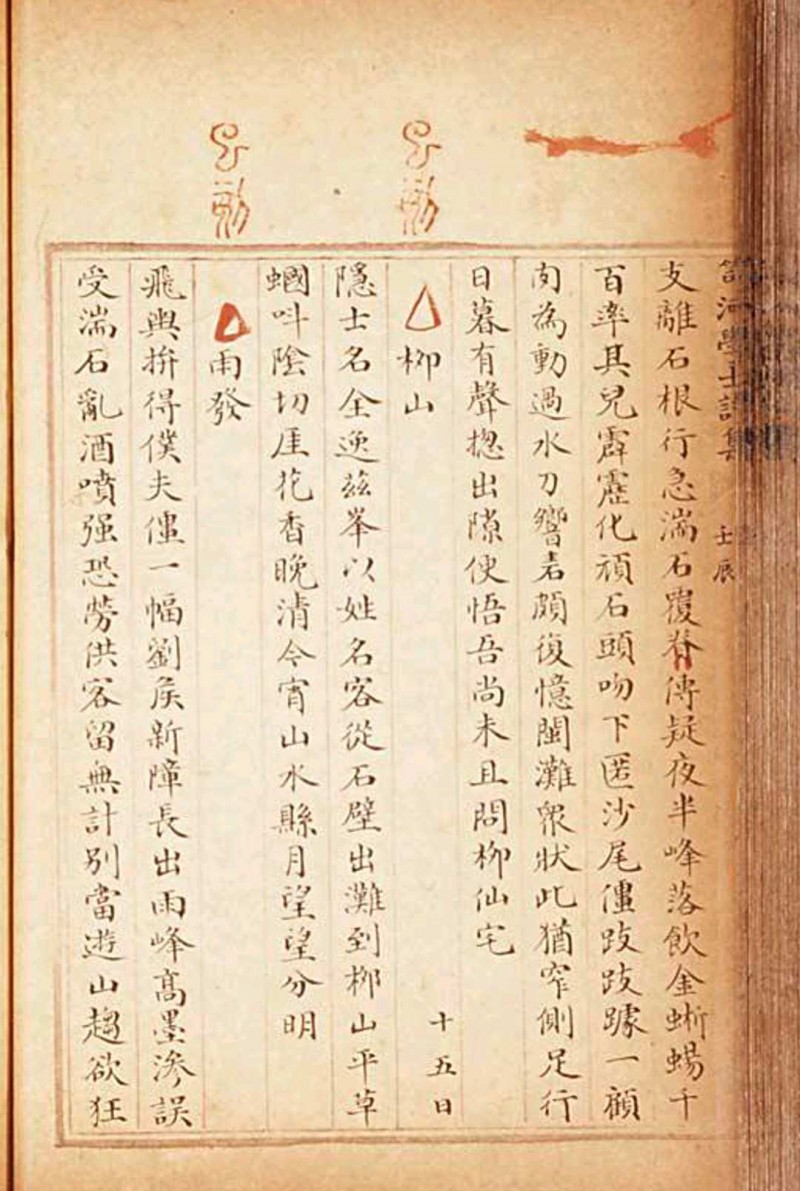 笥河學士詩集 壬辰
支離石根行急湍石覆脊傳疑夜半峰落飲金蜥蜴千
百率其兒霹靂化頑石頭吻下匿沙尾僵跂跂躆一顧
肉為動過水刀響砉頗復憶閩灘衆狀此猶窄側足行
日暮有聲揔出隙使悟吾尚未且問柳仙宅
柳山 十五日
隱士名全逸茲峯以姓名客從石壁出灘到柳山平草
蟈呌陰切厓花香晩清今宵山水縣月望望分明
雨發
飛輿拚得僕夫僵一幅劉侯新障長出雨峰髙墨滲誤
受湍石亂酒噴强恐勞供客留無計別當遊山趨欲狂